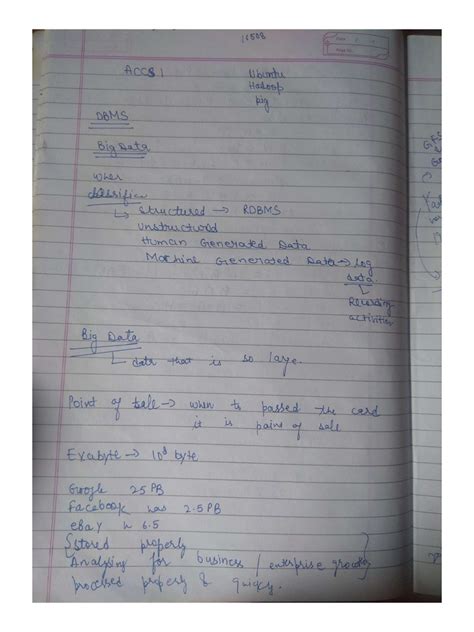 Date
Page No.
ACCS 1
Ubuntu
Hadoop
Pig
DBMS
Big Data
When
classifica
↳ structured → RDBMS
unstructured
Human Generated Data
Machine Generated Data → log
data.
↳ Recording
activities
Big Data
↳ data that is so large.
Point of sale → when to passed the card
it is point of sale
Exabyte → 10 byte
Google 25 PB
Facebook has 2.5 PB
eBay 6.5
{ stored properly
Analysing for business / enterprise growth
processed properly & quickly.